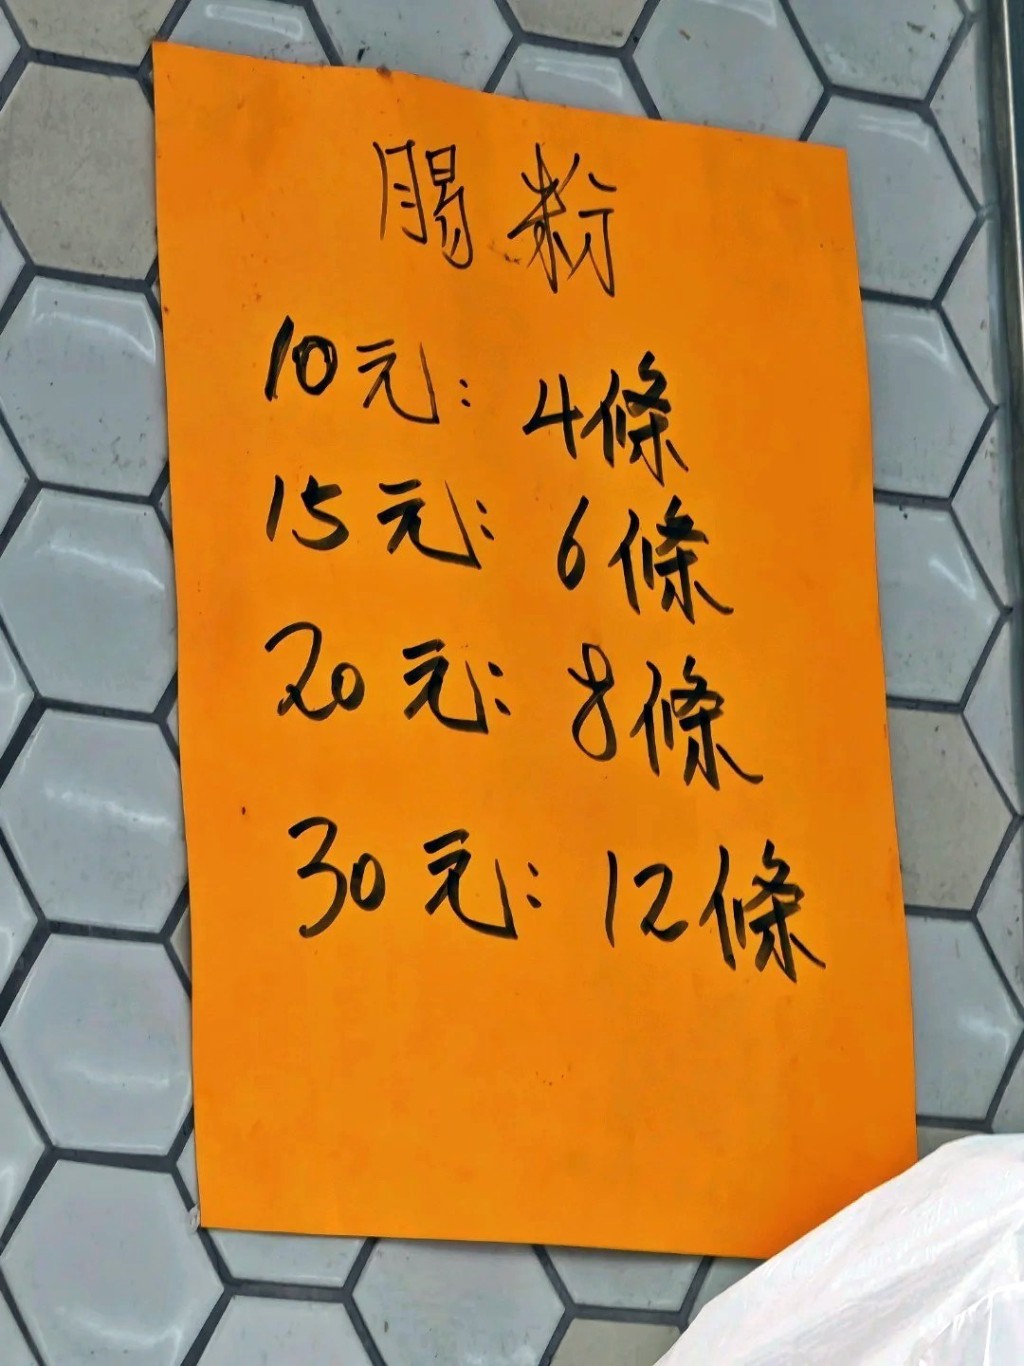 腸粉
10元: 4條
15元: 6條
20元: 8條
30元: 12條